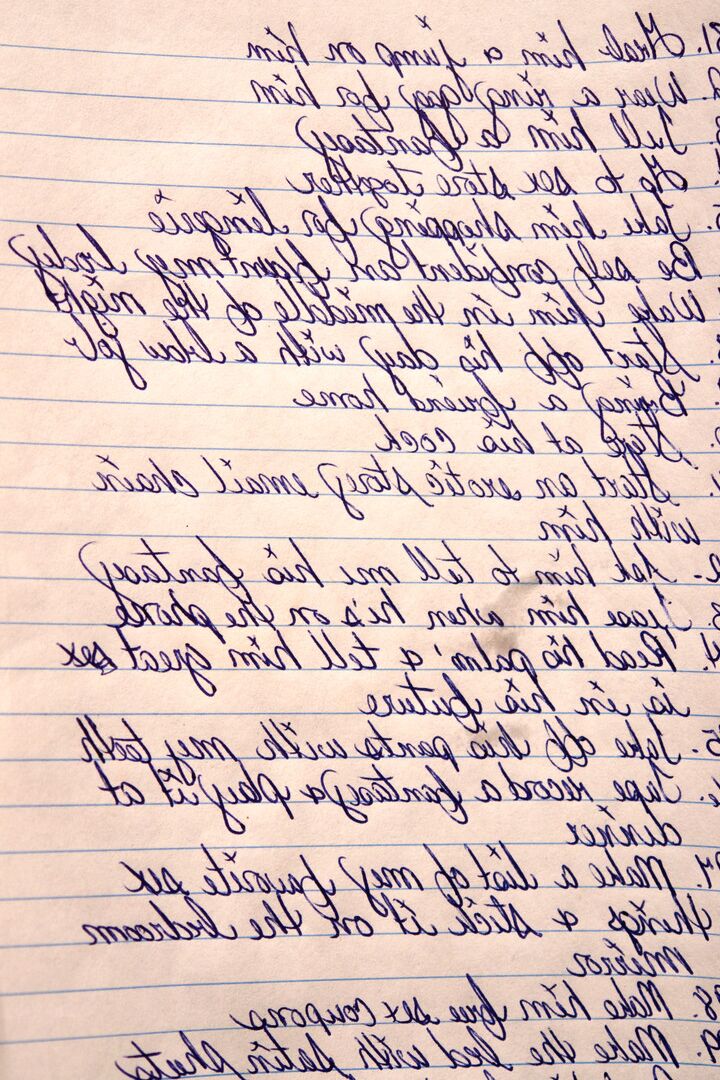 . Grab him & jump on him
. Wear a ring gag for him
. Tell him a fantasy
Go to sex store together
. Take him shopping for lengeie
Be self confident and flaunt my body
Wake him in the middle of the night
. Start off his day with a blow job
. Bring a friend home
. Stare at his cock
. Start an erotic story email chain
with him
2- Ask him to tell me his fantasy
3. Tease him when he's on the phone
4. Read his palm & tell him great sex
is in his future
5. Take off his pants with my teeth
. Tape record a fantasy & play it at
dinner
97. Make a list of my favorite sex
things & stick it on the bedroom
mirror
98. Make him free sex coupons
9. Make the bed with satin sheets